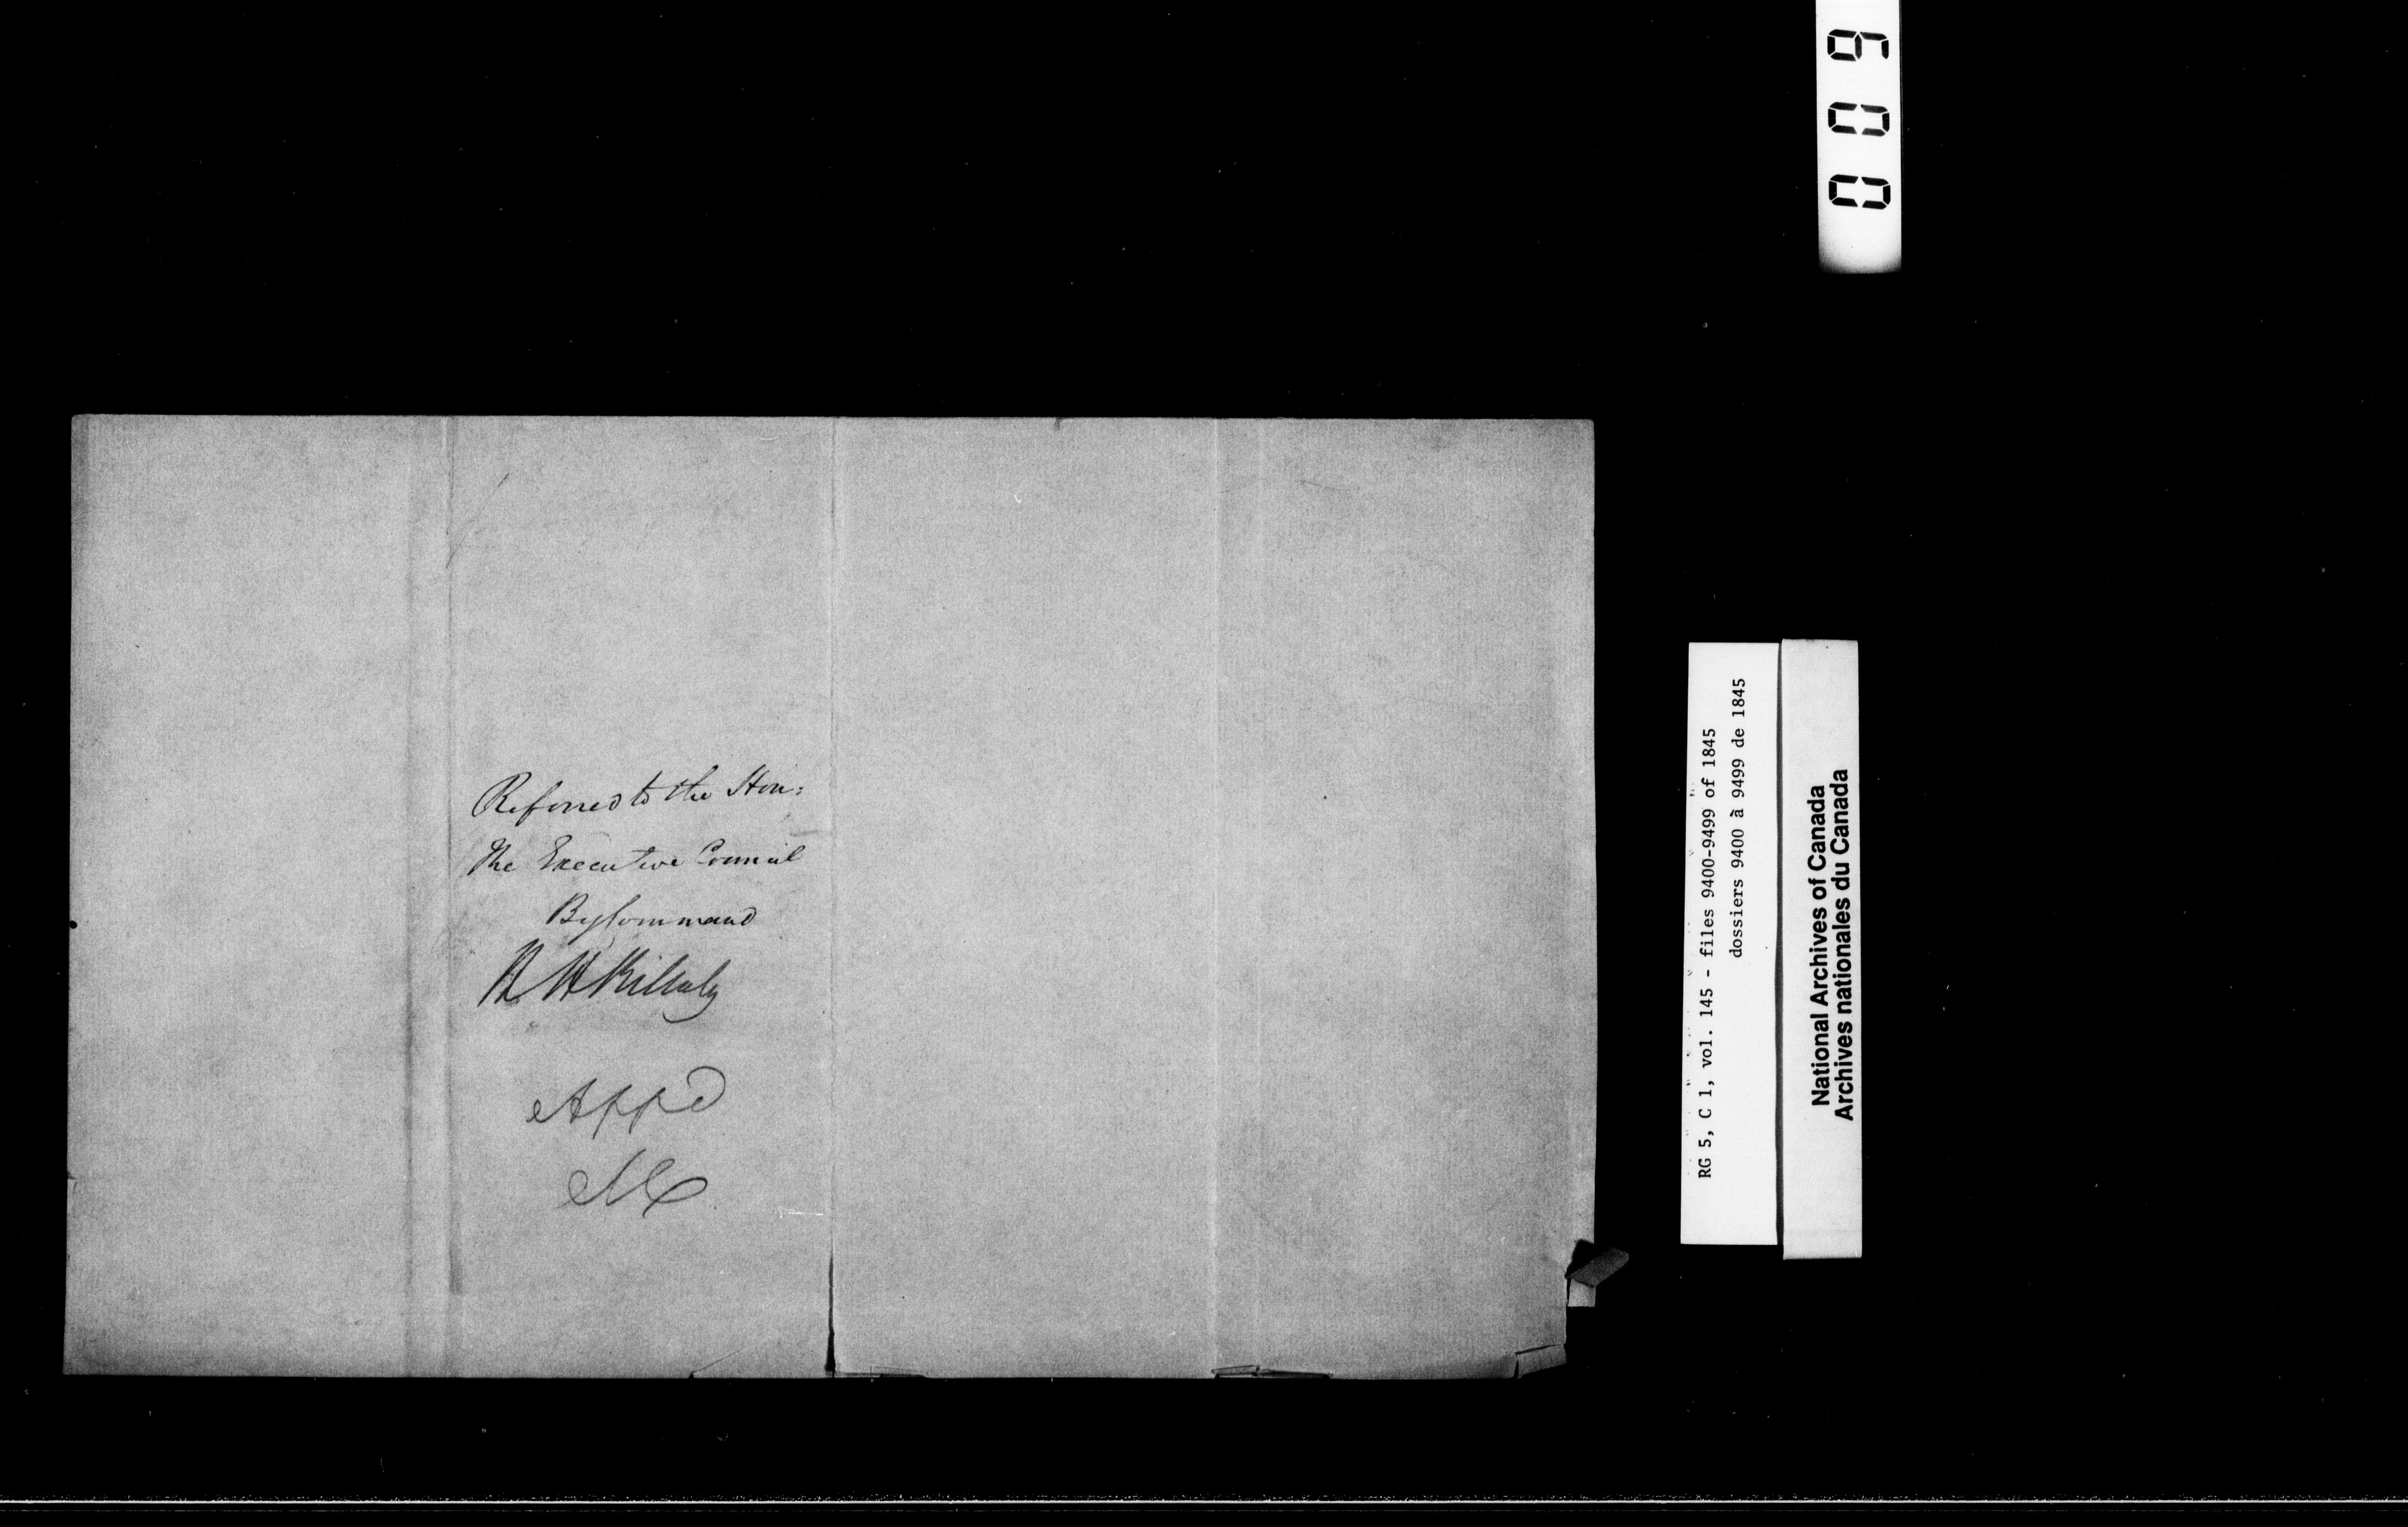 Referred to the Hon:
The Executive Council
By Command
H H Killaly
Appd
MC
009
RG 5, C 1, vol. 145 - files 9400-9499 of 1845
dossiers 9400 à 9499 de 1845
National Archives of Canada
Archives nationales du Canada